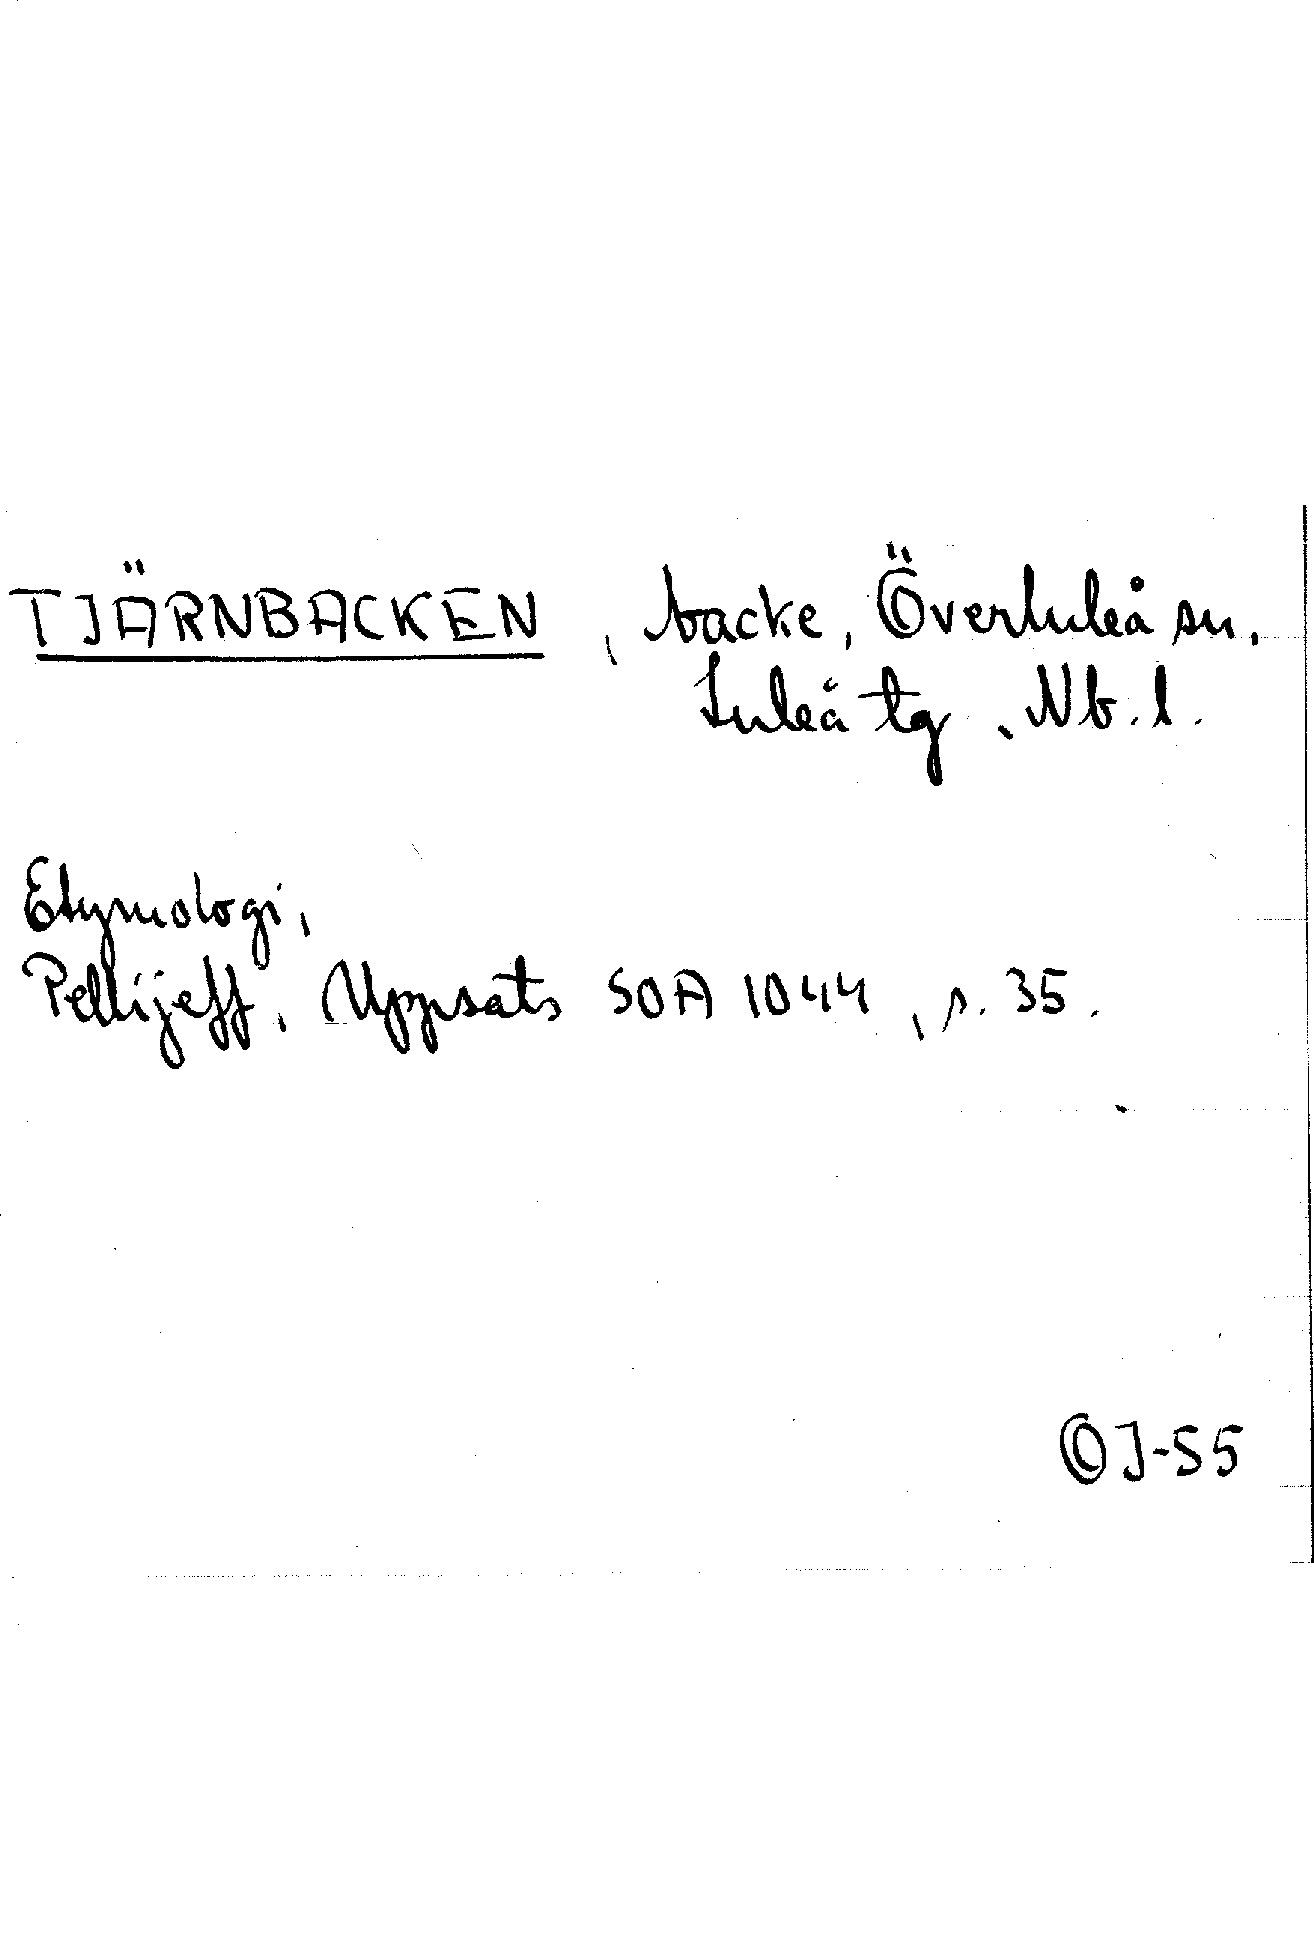 TJÄRNBACKEN, backe, Överluleå sn.
Luleå tg, Nb.l.
Etymologi,
Pellijeff, Uppsats SOA 1044, s. 35.
©J-S5